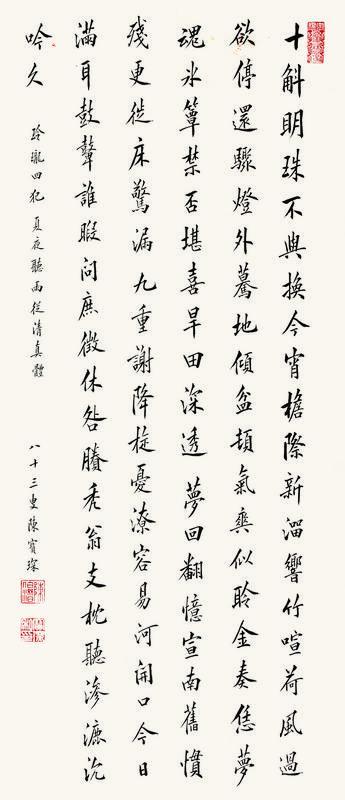 十斛明珠不與換今宵檐際新溜響竹喧荷風過
欲停還驟燈外驀地傾盆頓氣爽似聆金奏恁夢
魂冰簟禁否堪喜旱田深透夢回翻憶宣南舊慣
殘更從床驚漏九重謝降旋憂潦容易河開口今日
滿耳鼓鼙誰暇問庶徵休咎賸禿翁支枕聽滲漉沉
吟久
玲瓏四犯 夏夜聽雨從清真體
八十三叟陳寶琛